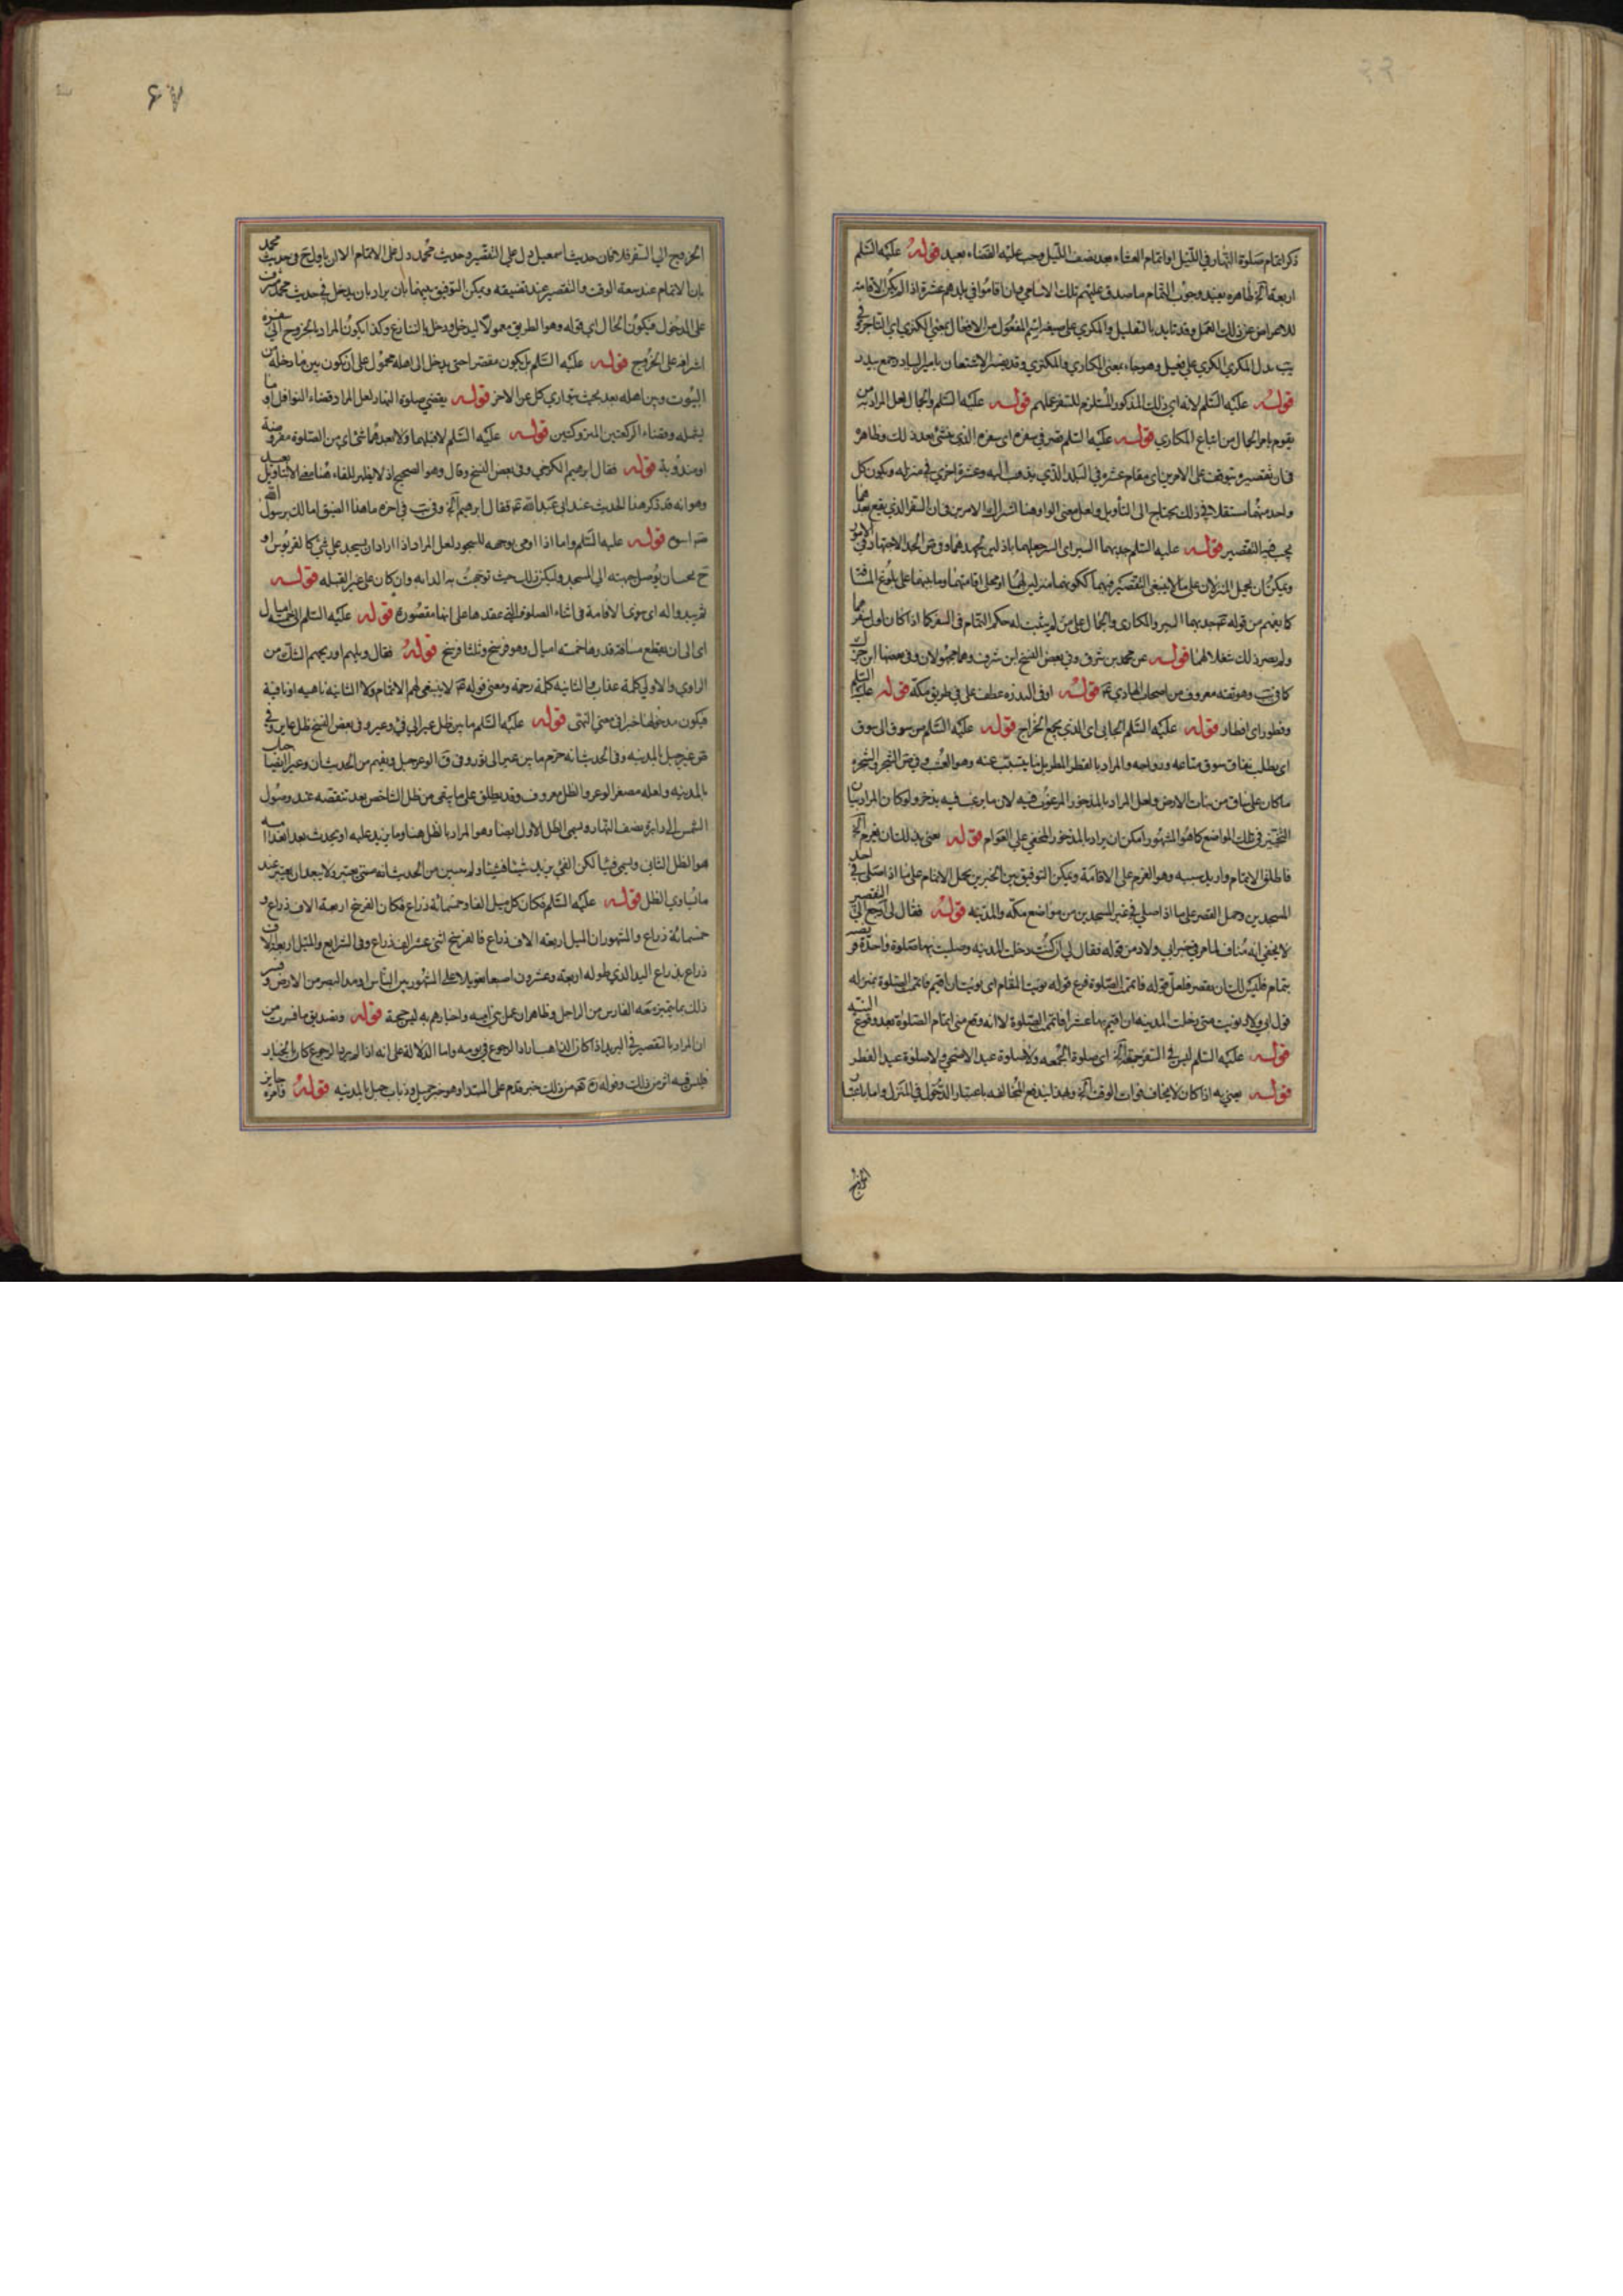 ذكر اتمام صلوة النهار في الليل او اتمام العشاء بعد نصف الليل وجب عليه القضاء بعيد قوله عليه السلم
اربعة الخ ظاهره يفيد وجوب التمام ما صدق عليهم تلك الاسامي وان اقاموا في بلدهم عشرة اذا لم يكن الاقامة
للاعراض عن ذلك العمل وقد تايد بالتعليل والمكري على صيغة اسم المفعول من الافعال بمعنى الكري اي التاجر وفي
يب بدل المكري الكري على فعيل وهو جاء بمعنى المكاري والمكتري وقد يفسر الاشتقان بامير البيادر جمع بيدر
قوله عليه السلم لانه اي ذلك المذكور المستلزم للسفر عملهم قوله عليه السلم والجمال لعل المراد به من
يقوم بامر الجمال من اتباع المكاري قوله عليه السلم قصر في سفره اي سفره الذي ينشئ بعد ذلك وظاهره
فان تقصيره يتوقف على الامرين اي مقام عشرة في البلد الذي يذهب اليه وعشرة اخرى في منزله ويكون كل
واحد منهما مستقلا في ذلك يحتاج الى التأويل ولعل معنى الواو هنا اشتراك الامرين في ان السفر الذي يقع بعدهما
يجب فيه التقصير قوله عليه السلم جد بهما السير اي السير جعلهما باذلين لجهدهما وفي ص الجد الاجتهاد في الامور
ويمكن ان يحمل المنزلان على ما لا ينبغي التقصير فيهما ككونهما منزلين لهما او محل اقامتهما وما بينهما على بلوغ المسافة
كما يفهم من قوله جد بهما السير والمكاري والجمال على من لم يثبت له حكم التمام في السفر كما اذا كان اول سفرهما
ولم يصر ذلك شغلا لهما قوله عن محمد بن شرف وفي بعض النسخ ابن شرف وهما مجهولان وفي بعضها ابن جزك
كما في يب وهو ثقة معروف من اصحاب الهادي قوله او في الندره عطف على في طريق مكة قوله عليه السلم
وفطور اي افطار قوله عليه السلم الجابي اي الذي يجمع الخراج قوله عليه السلم من سوق الى سوق
اي يطلب نفاق سوق متاعه ورواجه والمراد بالقطر المطر بل نبا يتسبب عنه وهو العشب وفي ص الشجر والشجرة
ما كان على ساق من نبات الارض ولعل المراد بالمذخور المرغوب فيه لان ما يرغب فيه يذخر ولو كان المراد بيان
التخيير في تلك المواضع كما هو المشهور امكن ان يراد بالمذخور المخفي على العوام قوله يعني بذلك ان يعزم الخ
فاطلق الاتمام واريد سببه وهو العزم على الاقامة ويمكن التوفيق بين الخبرين بحمل الاتمام على ما اذا صلى في احد
المسجدين وحمل القصر على ما اذا صلى في غير المسجدين من مواضع مكة والمدينة قوله فقال لي ارجع الى التقصير
لا يخفى انه مناف لما مر في خبر ابي ولاد من قوله فقال لي ان كنت دخلت المدينة وصليت بها صلوة واحدة فريضة
بتمام فليس لك ان تقصر فلعل قوله فاتممت الصلوة فرع قوله نويت المقام اي نويت ان اقيم فاتمم الصلوة بمنزلة
قول ابي ولاد نويت متى دخلت المدينة ان اقيم بها عشرا فاتمم الصلوة لا انه وقع مني اتمام الصلوة بعد وقوع النية
قوله عليه السلم ليس في السفر جمعة الخ اي صلوة الجمعة ولا صلوة عيد الاضحى ولا صلوة عيد الفطر
قوله يعني به اذا كان لا يخاف فوات الوقت الخ وبهذا يندفع المخالفة باعتبار الدخول في المنزل واما باعتبار
الخروج
٤٧
الخروج الى السفر فلا فان حديث اسمعيل دل على التقصير وحديث محمد دل على الاتمام الا ان ياول ح في حديث محمد
بان الاتمام عند سعة الوقت والتقصير عند تضيقه ويمكن التوفيق بينهما بان يراد بان يدخل في حديث محمد شرف
على الدخول فيكون الحال اي قوله وهو الطريق معمولا ليدخل ودخل بالتنازع وكذا يكون المراد بالخروج الى سفره
اشرافه على الخروج قوله عليه السلم بل يكون مقصرا حتى يدخل الى اهله محمول على ان يكون بين ما دخله من
البيوت وبين اهله بعد بحيث يتواري كل عن الاخر قوله يقضي صلوة النهار لعل المراد قضاء النوافل او ما
يشمله وقضاء الركعتين المتروكتين قوله عليه السلم لا قبلهما ولا بعدهما شئ اي من الصلوة مفروضة
او مندوبة قوله فقال ابرهيم الكرخي وفي بعض النسخ وقال وهو الصحيح اذ لا يظهر للفاء هنا معنى الا بتاويل بعيد
وهو انه قد ذكر هذا الحديث عند ابي عبد الله فقال ابرهيم الخ وفي يب في اخره ما هذا الضيق اما لك برسول الله
اسوة قوله عليه السلم واما اذا اومى بوجهه للسجود لعل المراد اذا اراد ان يسجد على شئ كالقربوس او
ح يحسان يوصل جبهته الى المسجد وليكن ذلك حيث توجهت به الدابة وان كان على غير القبله قوله
ثم يبدو له اي سوى الاقامة في اثناء الصلوة التي عقدها على انها مقصورة قوله عليه السلم الى خمسة اميال
اي الى ان يقطع مسافة قدرها خمسة اميال وهو فرسخ وثلثا فرسخ قوله فقال ويلهم او ويحهم الشك من
الراوي والاولى كلمة عذاب والثانية كلمة رحمة ومعنى قوله لا ينبغي لهم الاتمام ولا الثانية ناهية او نافية
فيكون مدخولها خبرا في معنى النهي قوله عليه السلم ما بين ظل عير الى فئ وعير وفي بعض النسخ ظل عاير وفي
ق عير جبل بالمدينة وفي الحديث انه حرم ما بين عير الى ثور وفي ق الوعر جبل ويفهم من الحديث ان وعيرا ايضا جبل
بالمدينة ولعله مصغر الوعر والظل معروف وقد يطلق على ما يبقى من ظل الشاخص بعد تنقصه عند وصول
الشمس الى دائرة نصف النهار ويسمى الظل الاول ايضا وهو المراد بالظل هنا وما يزيد عليه او يحدث بعد انعدامه
هو الظل الثاني ويسمى فيئا لكن الفئ يزيد شيئا فشيئا ولم يتبين من الحديث انه متى يعتبر ولا يبعد ان يعتبر عند
ما يساوي الظل قوله عليه السلم فكان كل ميل الفا وخمسمائة ذراع فكان الفرسخ اربعة الاف ذراع و
خمسمائة ذراع والمشهور ان الميل اربعة الاف ذراع فالفرسخ اثني عشر الف ذراع وفي الشرايع والميل اربعة الاف
ذراع بذراع اليد الذي طوله اربعة وعشرون اصبعا تعويلا على المشهور بين الناس او مد البصر من الارض وفسر
ذلك بما يتميز معه الفارس من الراجل وظاهر ان عمل بني امية واخبارهم به ليس حجة قوله وتصديق ما فسرت من
ان المراد بالتقصير في البريد اذا كان الذاهب اراد الرجوع في يومه واما الدلالة على انه اذا لم يرد الرجوع كان بالخيار
فليس فيه اثر من ذلك وقوله من ذلك خبر مقدم على المبتدا وهو خبر جميل وذباب جبل بالمدينة قوله فامره جاير